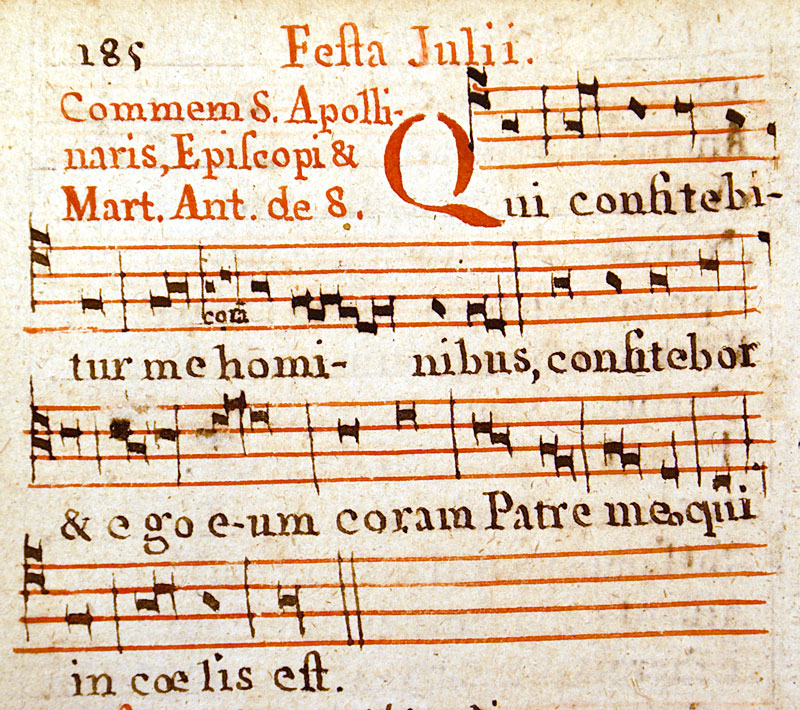 185 Festa Julii.
Commem S. Apolli-
naris, Episcopi &
Mart. Ant. de S.
Qui confitebi-
corā
tur me homi- nibus, confitebor
& ego e-um coram Patre meo, qui
in cœlis est.